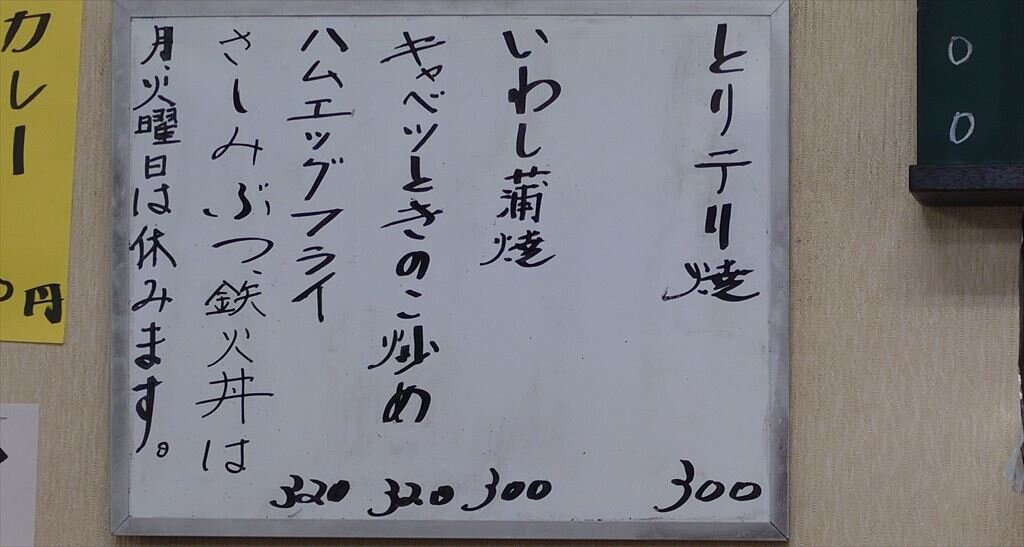 とりテリ焼 300
いわし蒲焼 300
キャベツときのこ炒め 320
ハムエッグフライ 320
さしみぶつ、鉄火丼は
月、火曜日は休みます。
カレー
0円
00